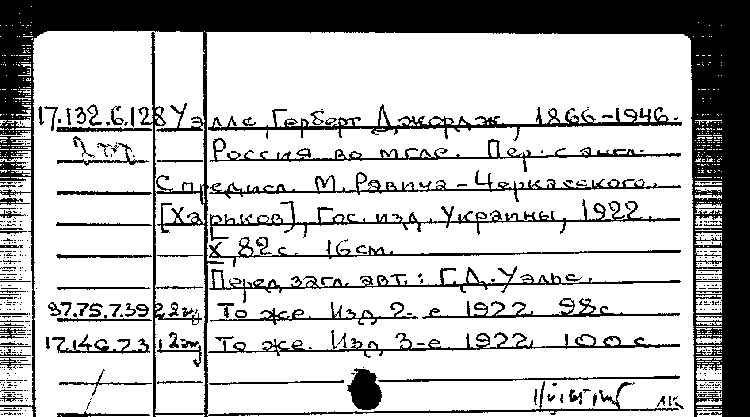 17.132.6.128 Уэллс, Герберт Джордж, 1866-1946.
2 эк Россия во мгле. Пер. с англ.
С предисл. М. Равича-Черкасского.
[Харьков], Гос. изд. Украины, 1922.
X, 82 с. 16 см.
Перед загл. авт.: Г.Д. Уэльс.
37.75.7.39 2 эк То же. Изд. 2-е 1922. 98 с.
17.146.7.3 2 эк То же. Изд. 3-е 1922. 100 с.